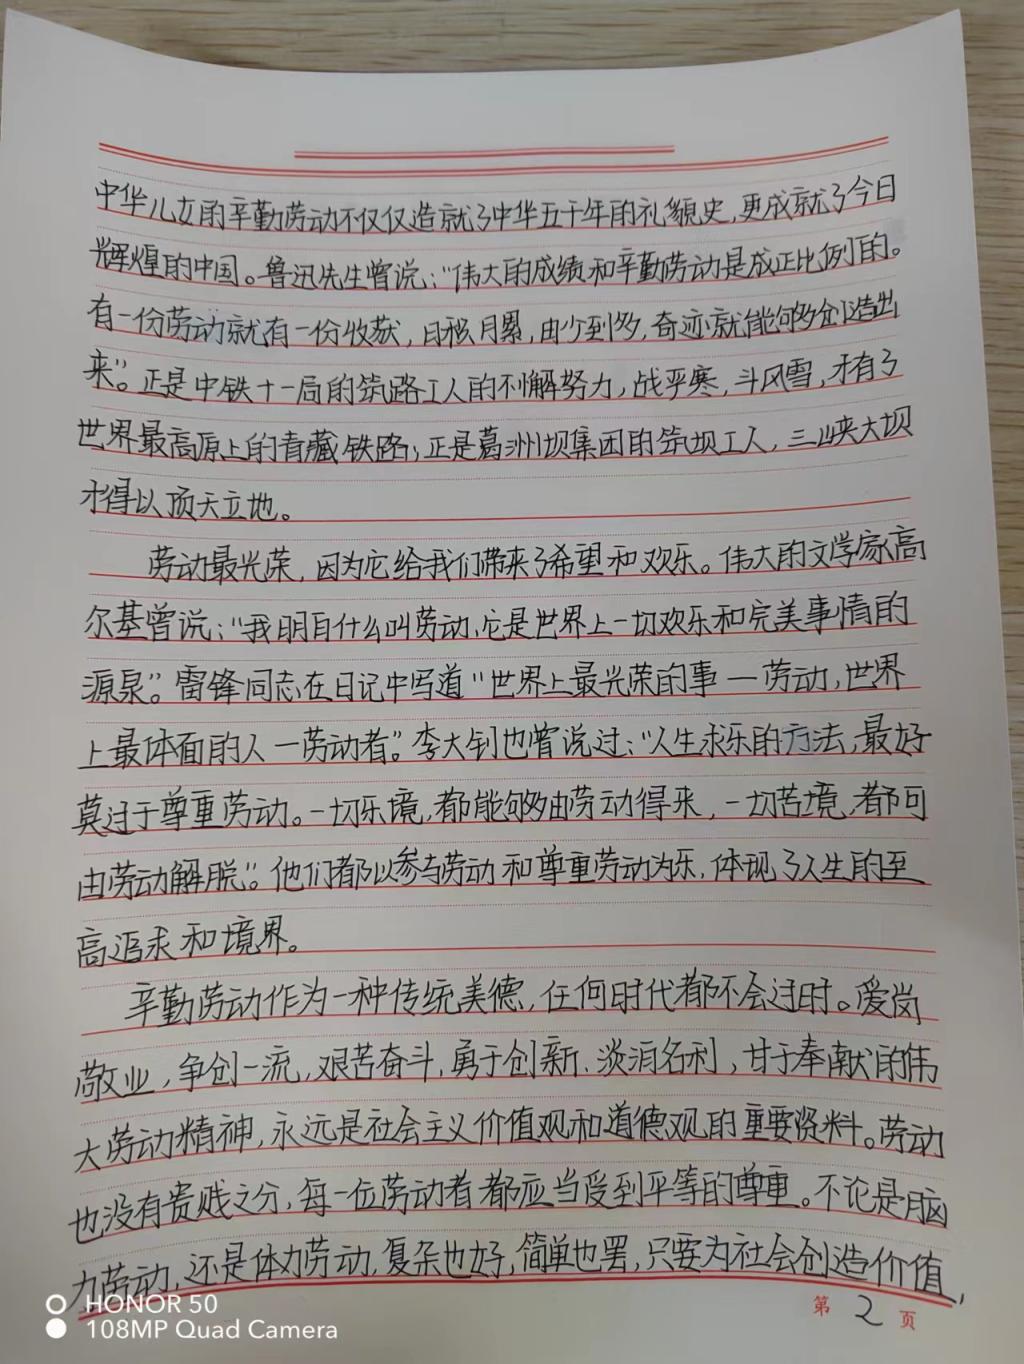 中华儿女的辛勤劳动不仅仅造就了中华五千年的礼貌史，更成就了今日
辉煌的中国。鲁迅先生曾说：“伟大的成绩和辛勤劳动是成正比例的。
有一份劳动就有一份收获，日积月累，由少到多，奇迹就能够创造出
来”。正是中铁十一局的筑路工人的不懈努力，战严寒，斗风雪，才有了
世界最高原上的青藏铁路；正是葛洲坝集团的筑坝工人，三峡大坝
才得以顶天立地。
劳动最光荣，因为它给我们带来了希望和欢乐。伟大的文学家高
尔基曾说：“我明白什么叫劳动，它是世界上一切欢乐和完美事情的
源泉”。雷锋同志在日记中写道“世界上最光荣的事—劳动，世界
上最体面的人—劳动者”。李大钊也曾说过：“人生求乐的方法，最好
莫过于尊重劳动。一切乐境，都能够由劳动得来，一切苦境，都可
由劳动解脱”。他们都以参与劳动和尊重劳动为乐，体现了人生的至
高追求和境界。
辛勤劳动作为一种传统美德，任何时代都不会过时。爱岗
敬业，争创一流，艰苦奋斗，勇于创新，淡泊名利，甘于奉献的伟
大劳动精神，永远是社会主义价值观和道德观的重要资料。劳动
也没有贵贱之分，每一位劳动者都应当受到平等的尊重。不论是脑
力劳动，还是体力劳动，复杂也好，简单也罢，只要为社会创造价值，
第2页
HONOR 50
108MP Quad Camera